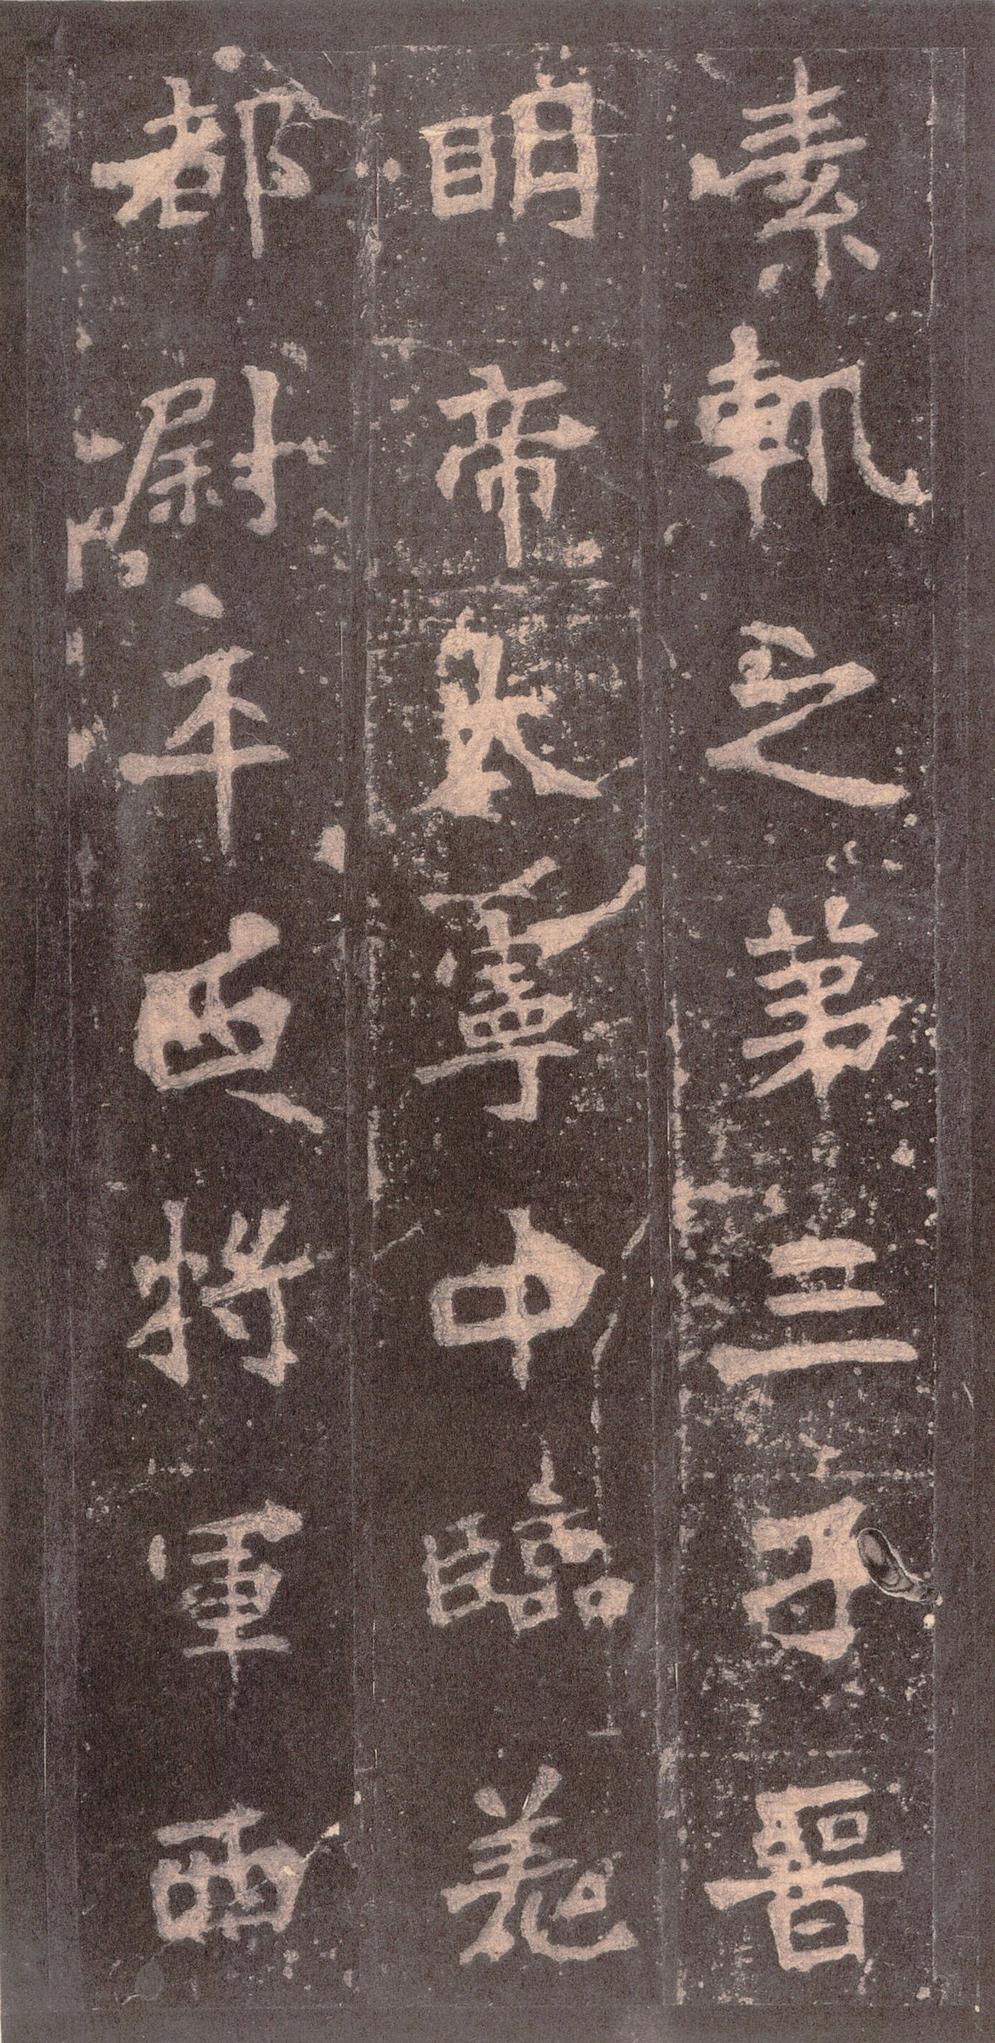 素軌之第三子晉
明帝大寧中臨羌
都尉平西將軍西